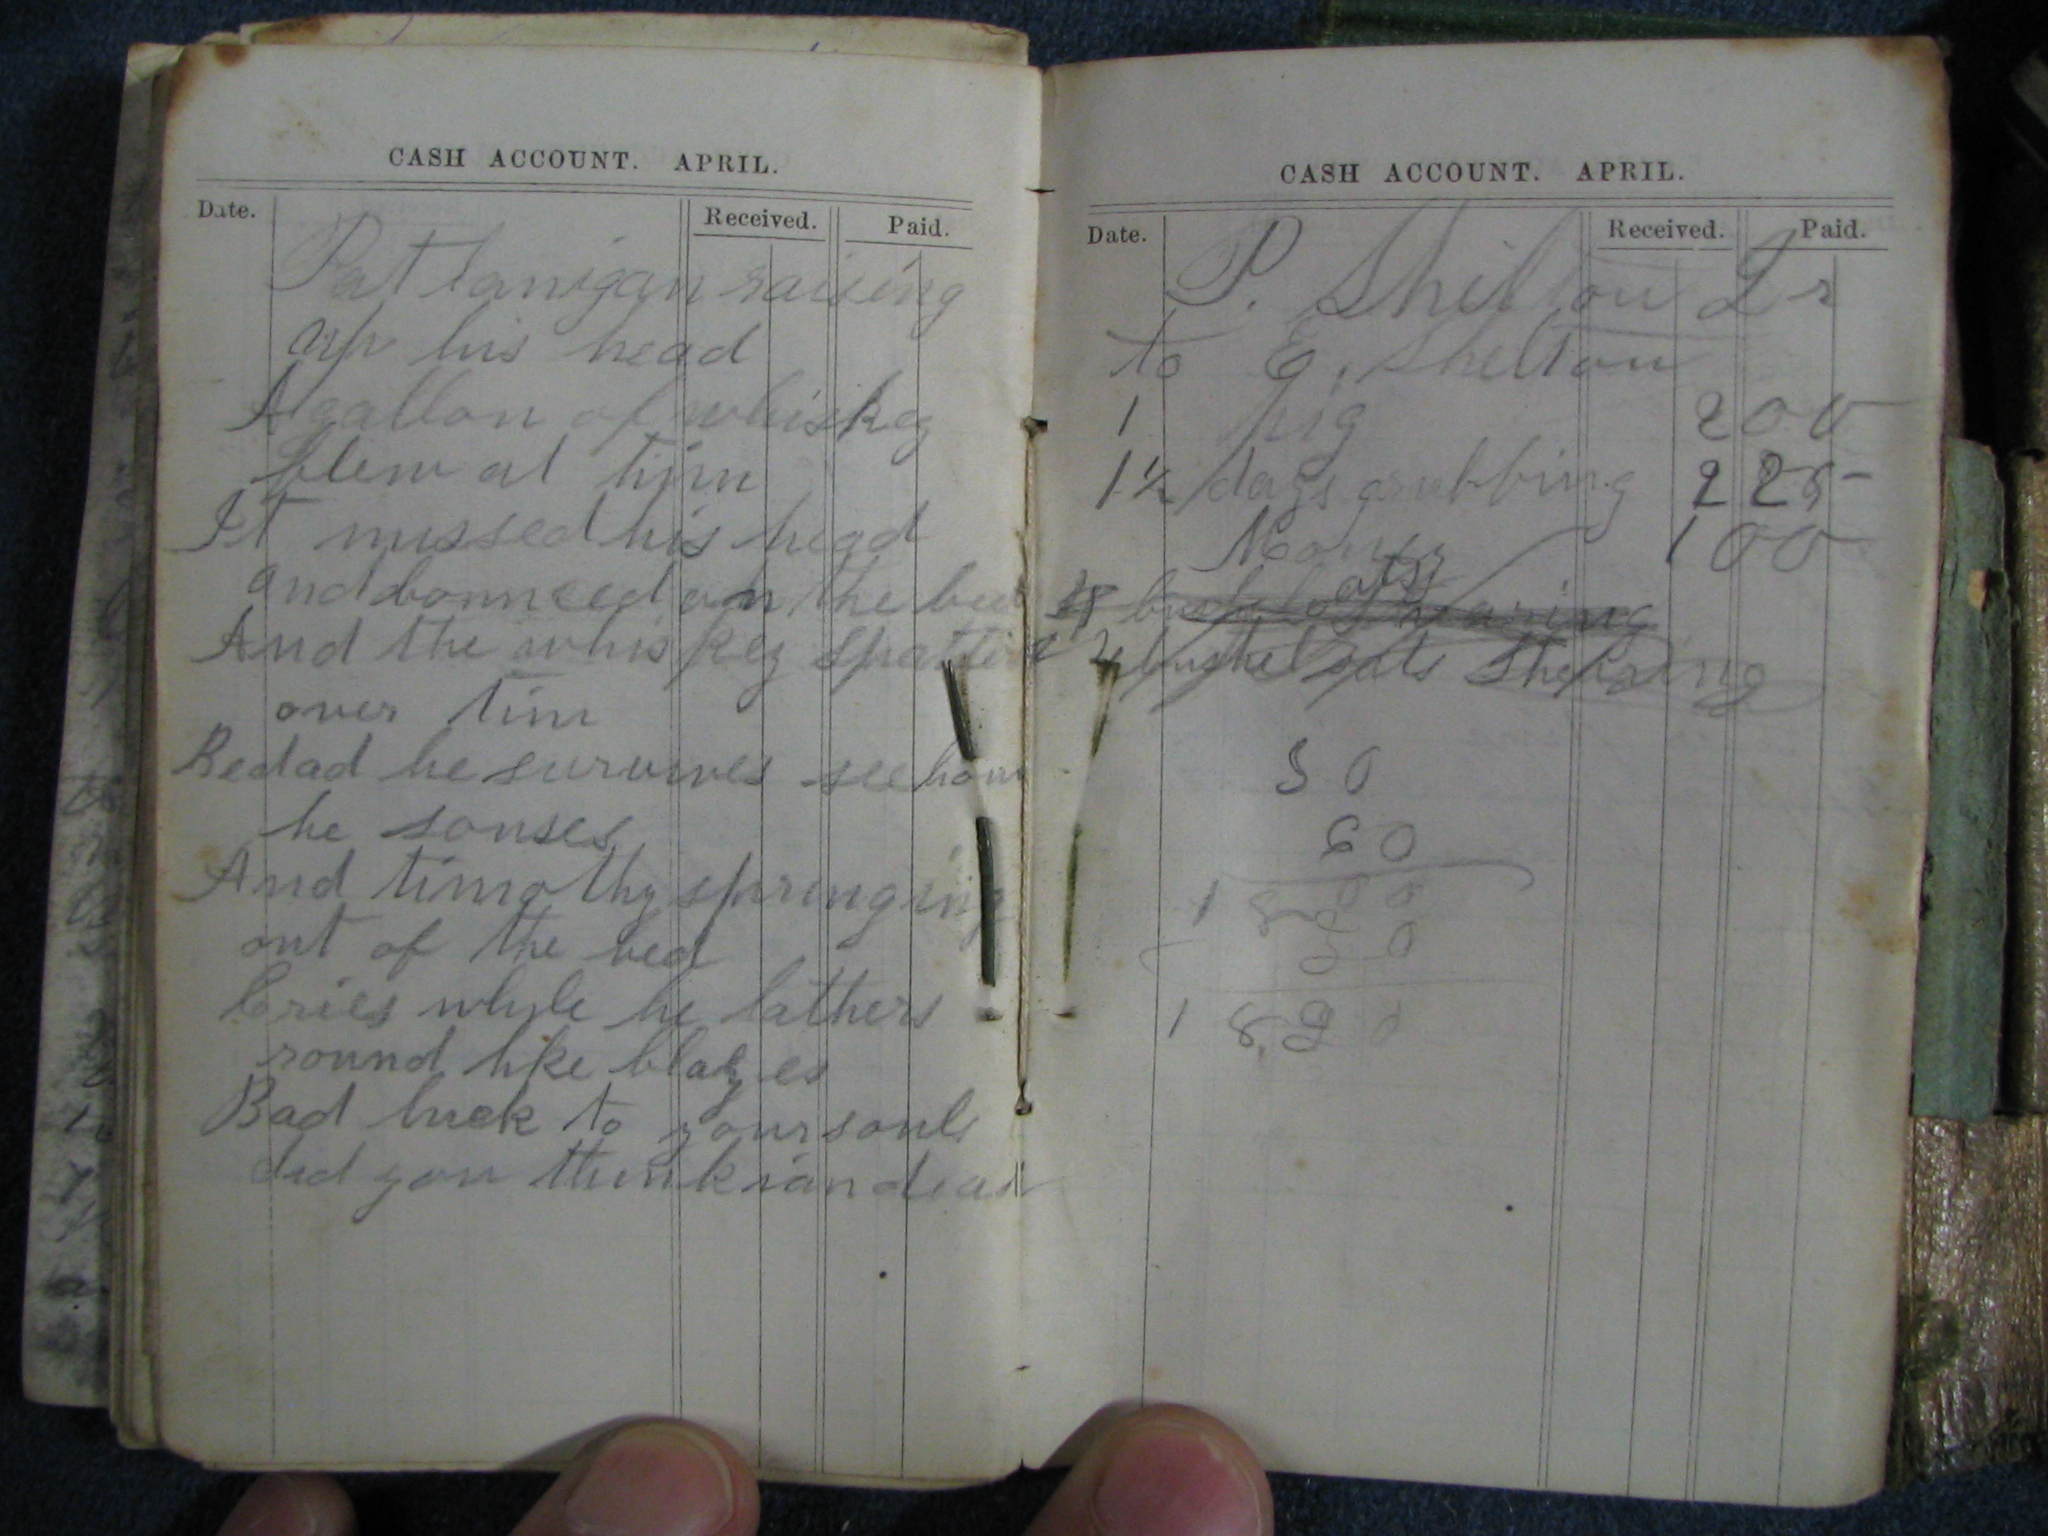 CASH ACCOUNT. APRIL.
Date. Received. Paid.
Pat lanigan raising
up his head
A gallon of whiskey
flew at him
It missed his head
and bounced on the bed
And the whiskey spattered
over tim
Bedad he survives see how
he souses
And timothy springing
out of the bed
Cries while he lathers
round like blazes
Bad luck to your souls
did you think ian dead
CASH ACCOUNT. APRIL.
Date. Received. Paid.
P. Shelton Dr
to E. Shelton
1 pig 200
1½ days grubbing 225
Money 100
bushel oats
2 bushel oats
50
60
1 8 0 0
5 0
1 8 5 0